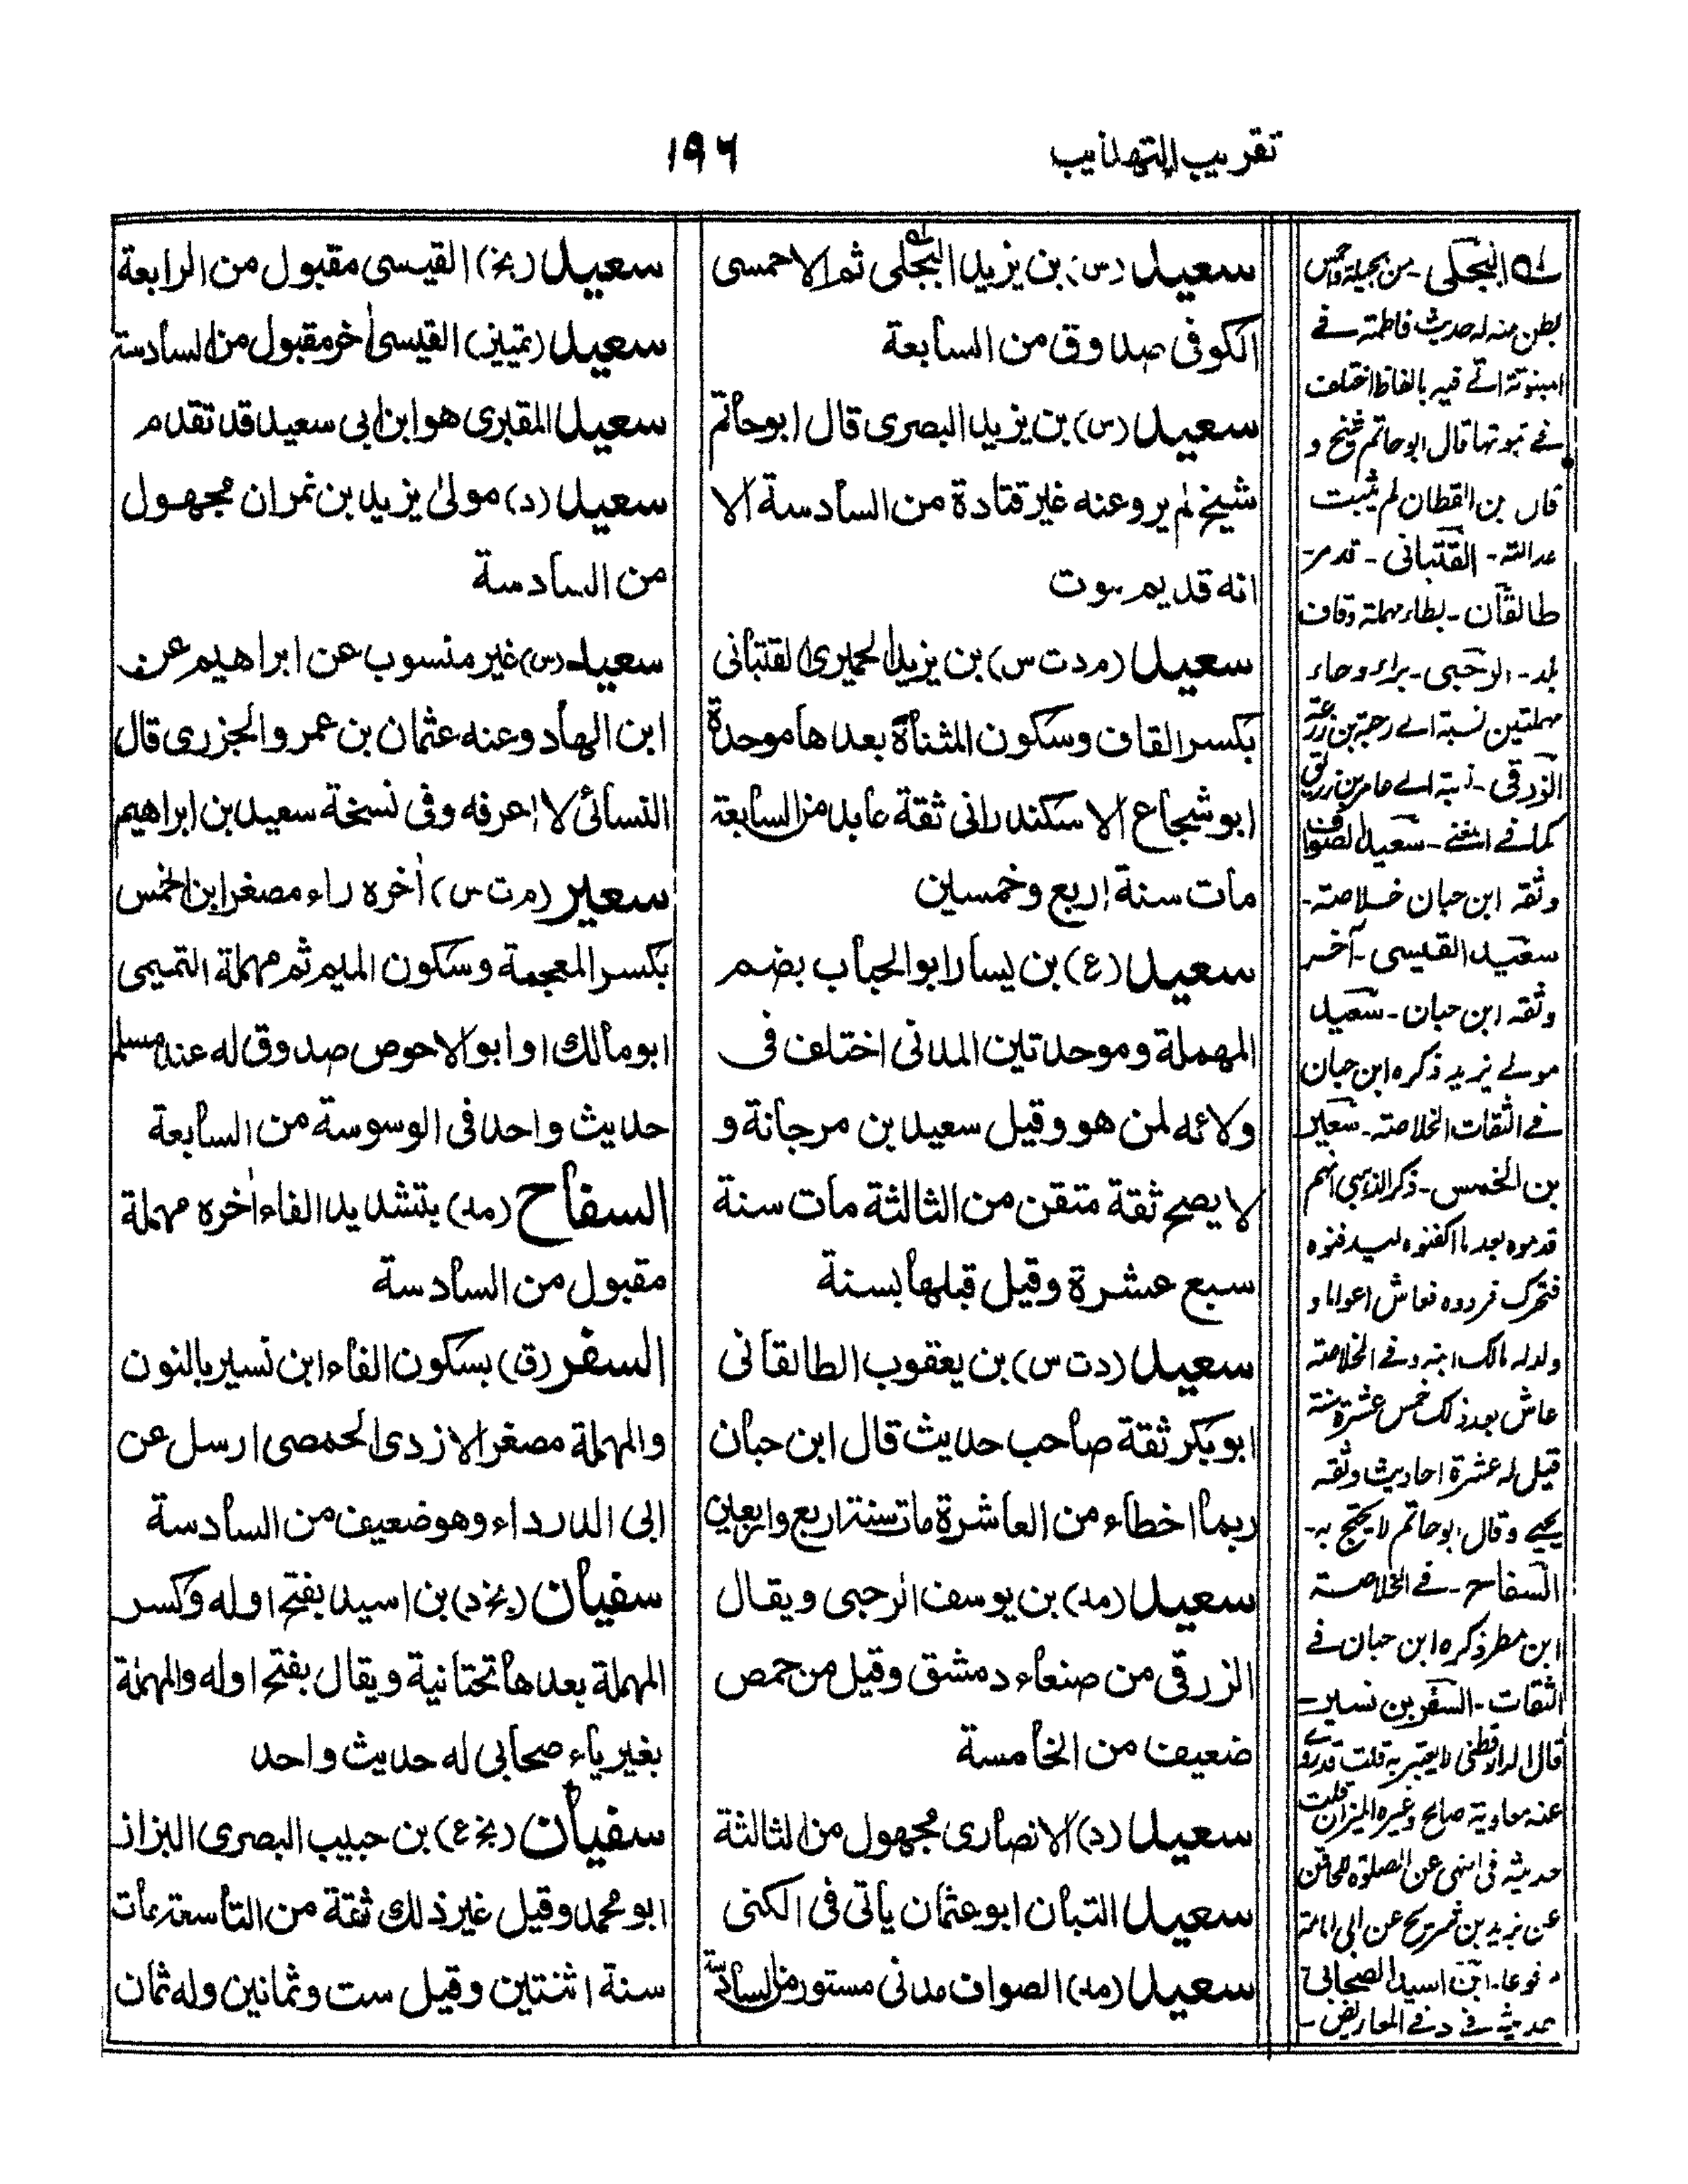 تقريب التهذيب
١٩٦
سعيد (س) بن يزيد البجلى ثم الاحمسى
الكوفى صدوق من السابعة
سعيد (س) بن يزيد البصرى قال ابوحاتم
شيخ لم يرو عنه غير قتادة من السادسة الا
انه قديم موت
سعيد (م د ت س) بن يزيد الحميرى القتبانى
بكسر القاف وسكون المثناة بعدها موحدة
ابو شجاع الاسكندرانى ثقة عابد من السابعة
مات سنة اربع وخمسين
سعيد (ع) بن يسار ابو الحباب بضم
المهملة وموحدتين المدنى اختلف فى
ولائه لمن هو وقيل سعيد بن مرجانة و
لا يصح ثقة متقن من الثالثة مات سنة
سبع عشرة وقيل قبلها بسنة
سعيد (د ت س) بن يعقوب الطالقانى
ابو بكر ثقة صاحب حديث قال ابن حبان
ربما اخطاء من العاشرة مات سنة اربع واربعين
سعيد (مد) بن يوسف الرحبى ويقال
الزرقى من صنعاء دمشق وقيل من حمص
ضعيف من الخامسة
سعيد (د) الانصارى مجهول من الثالثة
سعيد التبان ابو عثمان يأتى فى الكنى
سعيد (مد) الصواف مدنى مستور من السادسة
سعيد (بخ) القيسى مقبول من الرابعة
سعيد (تمييز) القيسى أخر مقبول من السادسة
سعيد المقبرى هو ابن ابى سعيد قد تقدم
سعيد (د) مولىٰ يزيد بن نمران مجهول
من السادسة
سعيد (س) غير منسوب عن ابراهيم عن
ابن الهاد وعنه عثمان بن عمرو الجزرى قال
النسائى لا اعرفه وفى نسخة سعيد بن ابراهيم
سعير (م ت س) أخره راء مصغر ابن الخمس
بكسر المعجمة وسكون الميم ثم مهملة التميمى
ابو مالك او ابو الاحوص صدوق له عند مسلم
حديث واحد فى الوسوسة من السابعة
السفاح (مد) بتشديد الفاء أخره مهملة
مقبول من السادسة
السفر (ق) بسكون الفاء ابن نسير بالنون
والمهملة مصغر الازدى الحمصى ارسل عن
ابى الدرداء وهو ضعيف من السادسة
سفيان (بخ د) بن اسيد بفتح اوله وكسر
المهملة بعدها تحتانية ويقال بفتح اوله والمهملة
بغير ياء صحابى له حديث واحد
سفيان (بخ ع) بن حبيب البصرى البزاز
ابو محمد وقيل غير ذلك ثقة من التاسعة مات
سنة اثنتين وقيل ست وثمانين وله ثمان
له البجلى - من بجيلة واحمس
بطن منه له حديث فاطمة فے
قے ثبوتها قال ابو حاتم شيخ و
قال بن القطان لم يثبت
عدالته - القتبانى - قدمر
طالقان - بطاء مهملة وقاف
بلد - الرحبى - براء وحاء
مهملتين نسبة الے رحبة بن زرعة
الزرقى - نسبة الے عامر بن زريق
كما فے المغنے - سعيد الصواف
وثقه ابن حبان خلاصة -
سعيد القيسى - آخر
وثقه ابن حبان - سعيد
مولے يزيد ذكره ابن حبان
فے الثقات الخلاصة - سعير
بن الخمس - ذكر الذهبى انهم
قدموه بعد ما اكفنوه ليدفنوه
فتحرك فردوه فعاش اعواما و
ولد له مالك ابنه وفے الخلاصة
عاش بعد ذلك خمس عشرة سنة
قيل له عشرة احاديث وثقه
يحيے وقال ابو حاتم لا يحتج به -
السفاح - فے الخلاصة
ابن مطر ذكره ابن حبان فے
الثقات - السفر بن نسير
قال الدارقطنى لا يعتبر به قلت قد روے
عنه معاوية صالح وغيره الميزان قلت
حديثه فى النهى عن الصلوة للحاقن
عن يزيد بن شريح عن ابى امامة
ابن اسيد الصحابى
حديثه فے د فے المعاريض -